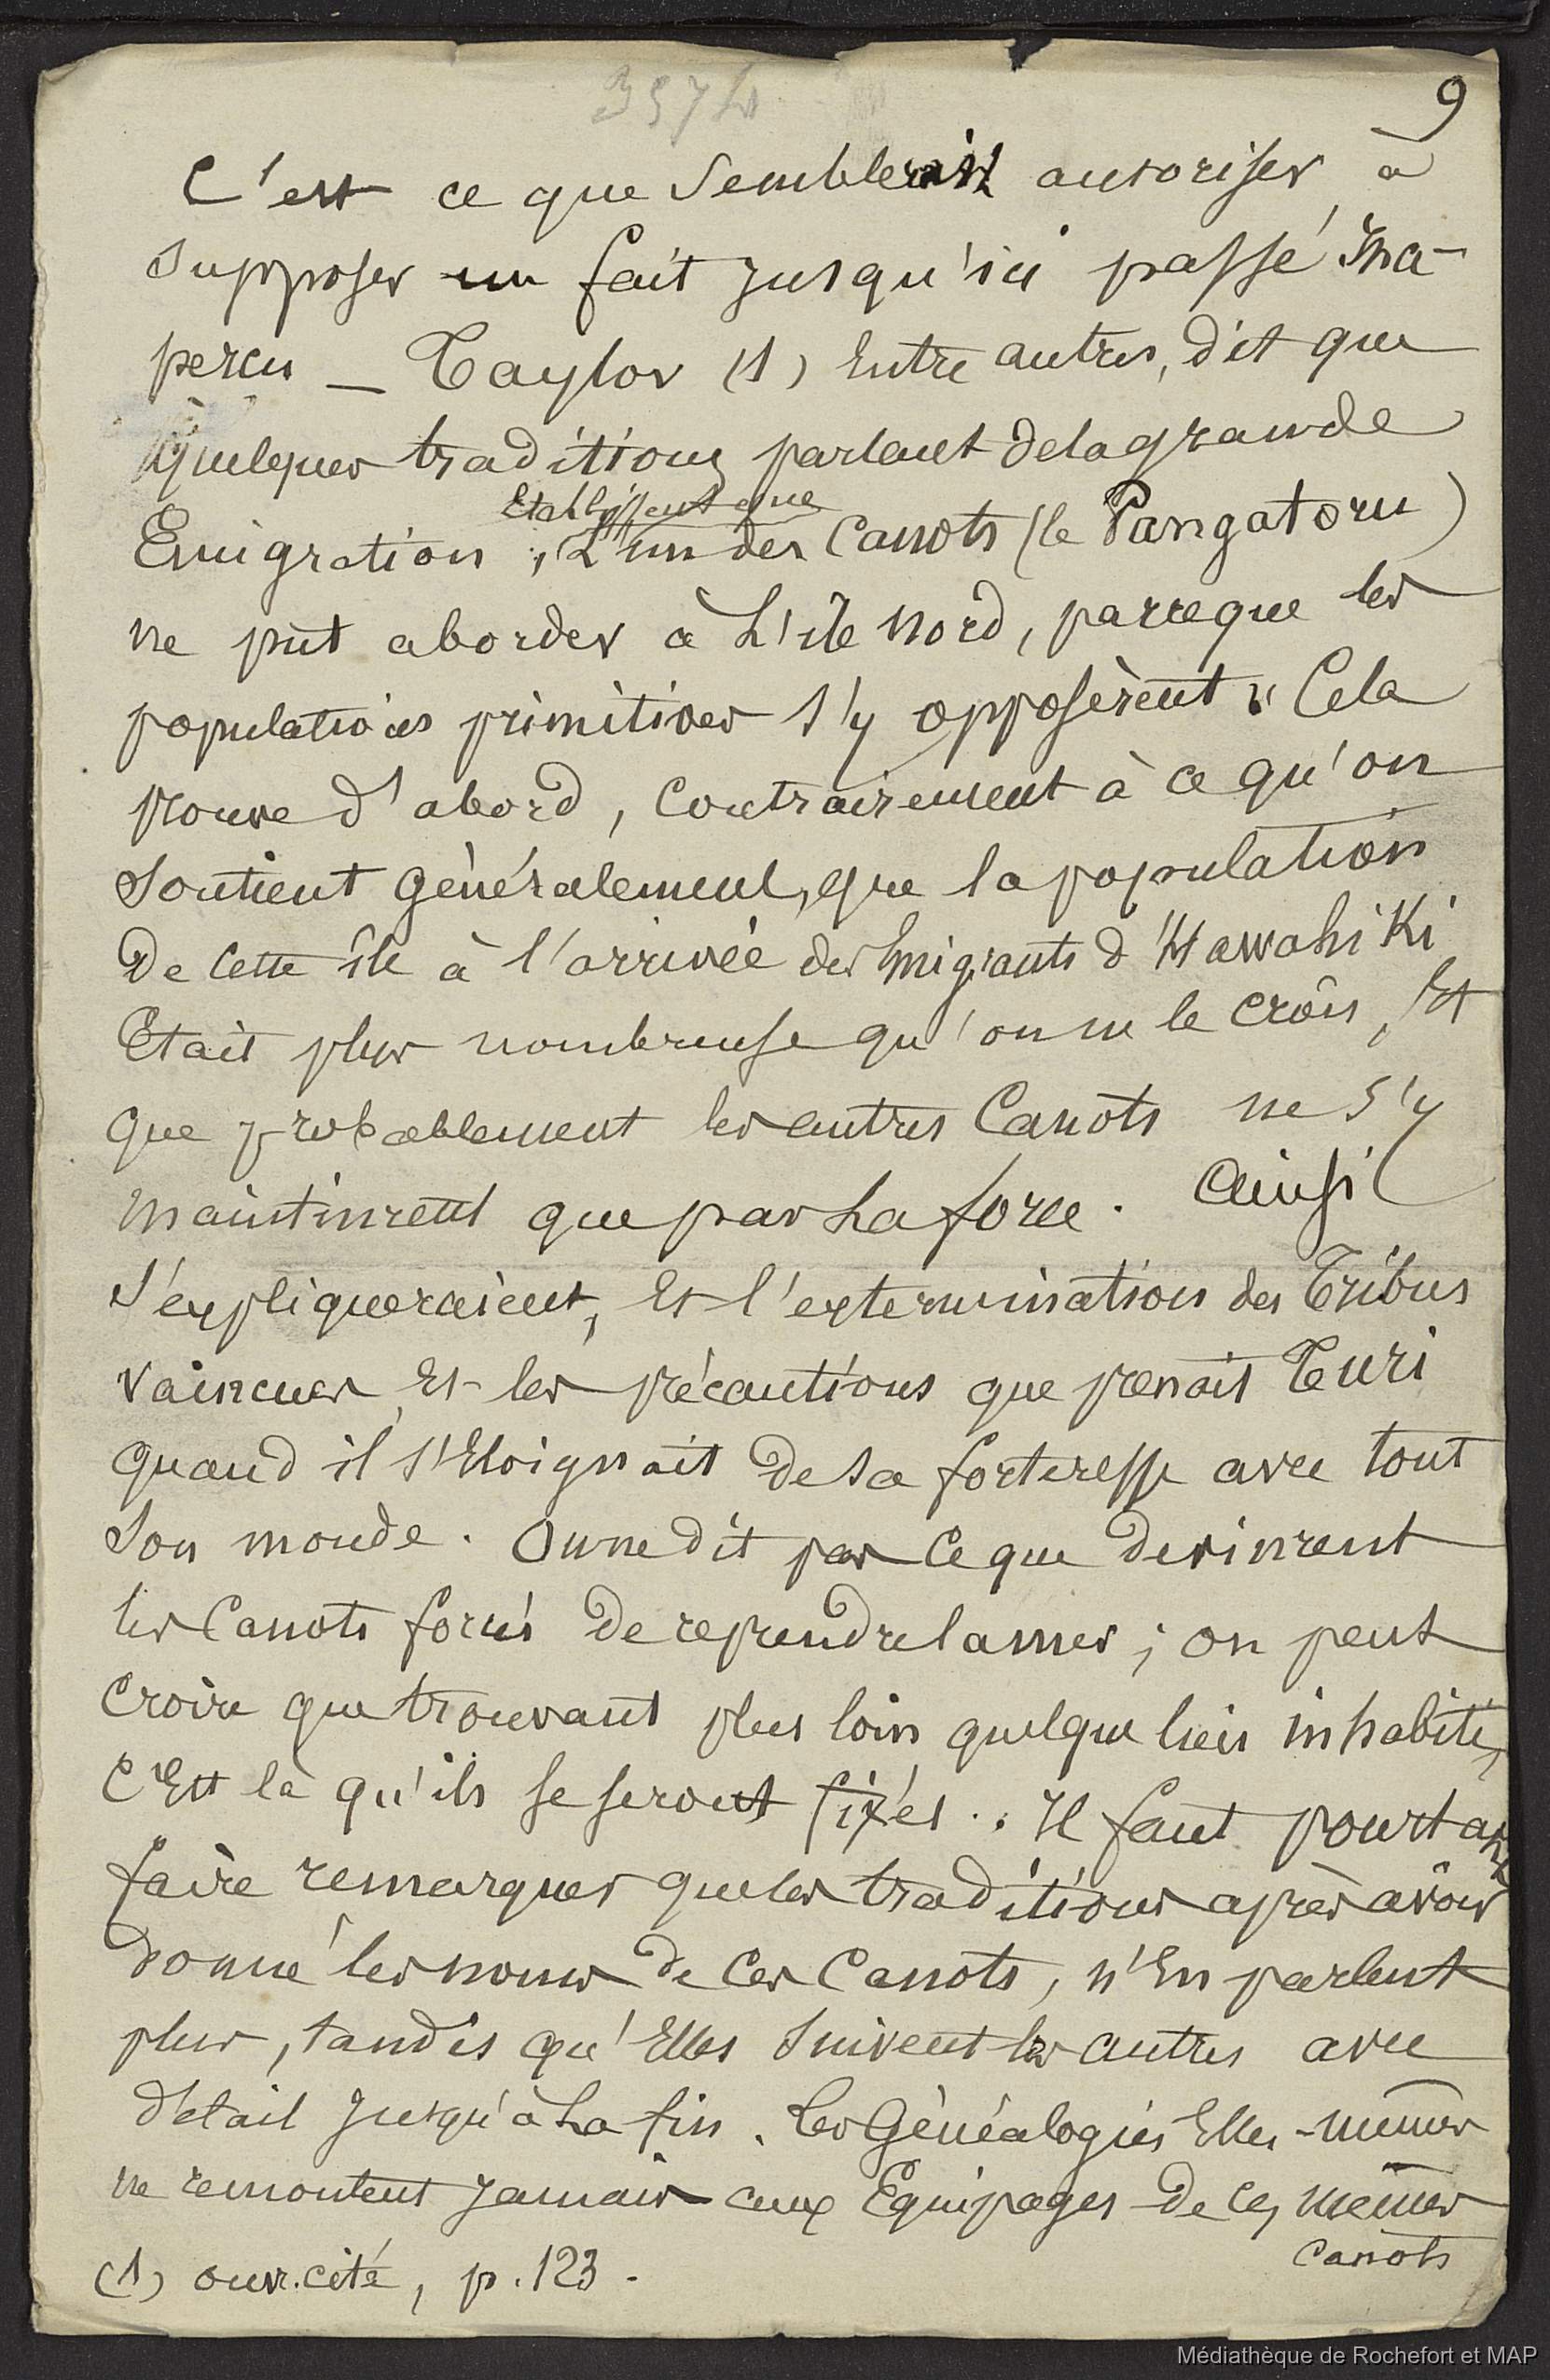 3574
9
C'est ce que semblerait autoriser à
supposer un fait jusqu'ici passé ina-
perçu — Taylor (1) entre autres, dit que
quelques traditions parlant de la grande
Etablissent que
Emigration, L'un des Canots (le Pangatoru)
ne put aborder à L'île nord, parceque les
populations primitives s'y opposèrent. Cela
prouve d'abord, Contrairement à ce qu'on
soutient généralement, que la population
De cette île à l'arrivée des Emigrants d'Hawahiki
Etait plus nombreuse qu'on ne le crois, Et
que probablement les autres Canots ne s'y
maintinrent que par La force. Ainsi
s'expliqueraient, Et l'extermination des Tribus
vaincues, Et les précautions que prenait Turi
quand il s'Eloignait De sa forteresse avec tout
son monde. On ne dit pas Ce que Devinrent
les Canots forcés De reprendre la mer; on peut
croire que trouvant plus loin quelque lieu inhabité,
C'Est là qu'ils se seront fixés. Il faut pourtant
faire remarquer que les traditions après avoir
donné les noms de Ces Canots, n'En parlent
plus, tandis qu'Elles suivent les autres avec
détail jusqu'à La fin. Les Généalogies Elles-mêmes
ne remontent jamais aux Equipages De Ces mêmes
Canots
(1) ouvr. cité, p. 123.
Médiathèque de Rochefort et MAP